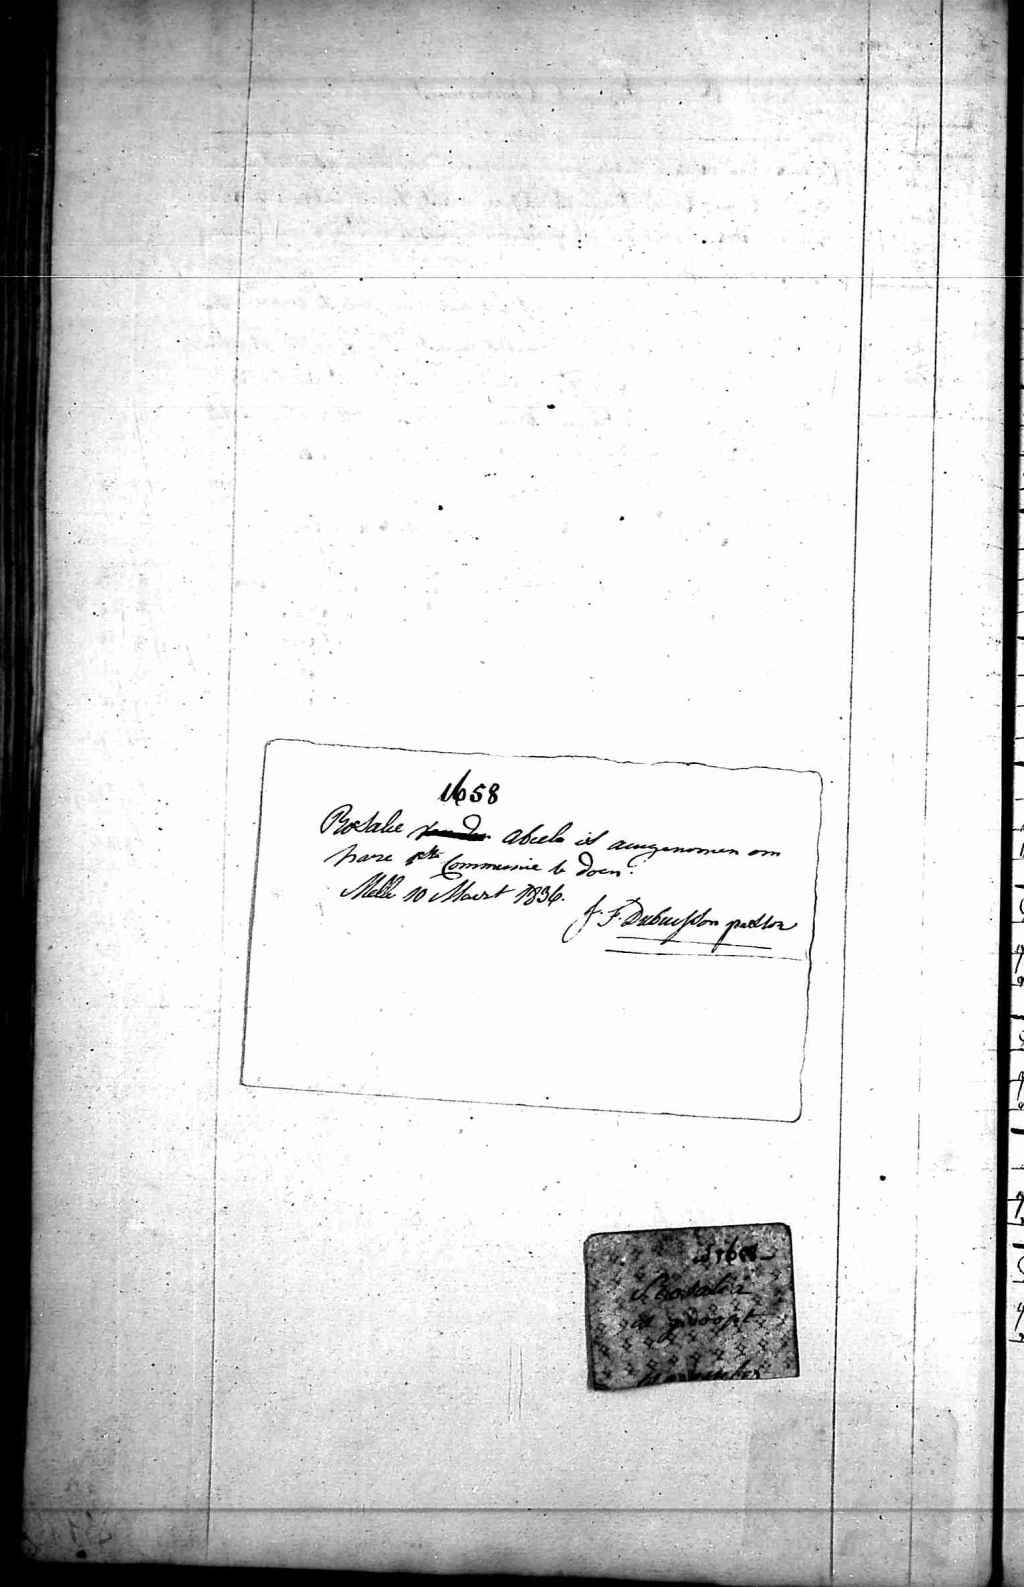 1658
Rosalie van den Abeele is aengenomen om
hare 1ste Communie te doen.
Melle 10 Maert 1836.
J. F. Dubuisson pastor
1658
S. Rosalia
is gedoopt
November